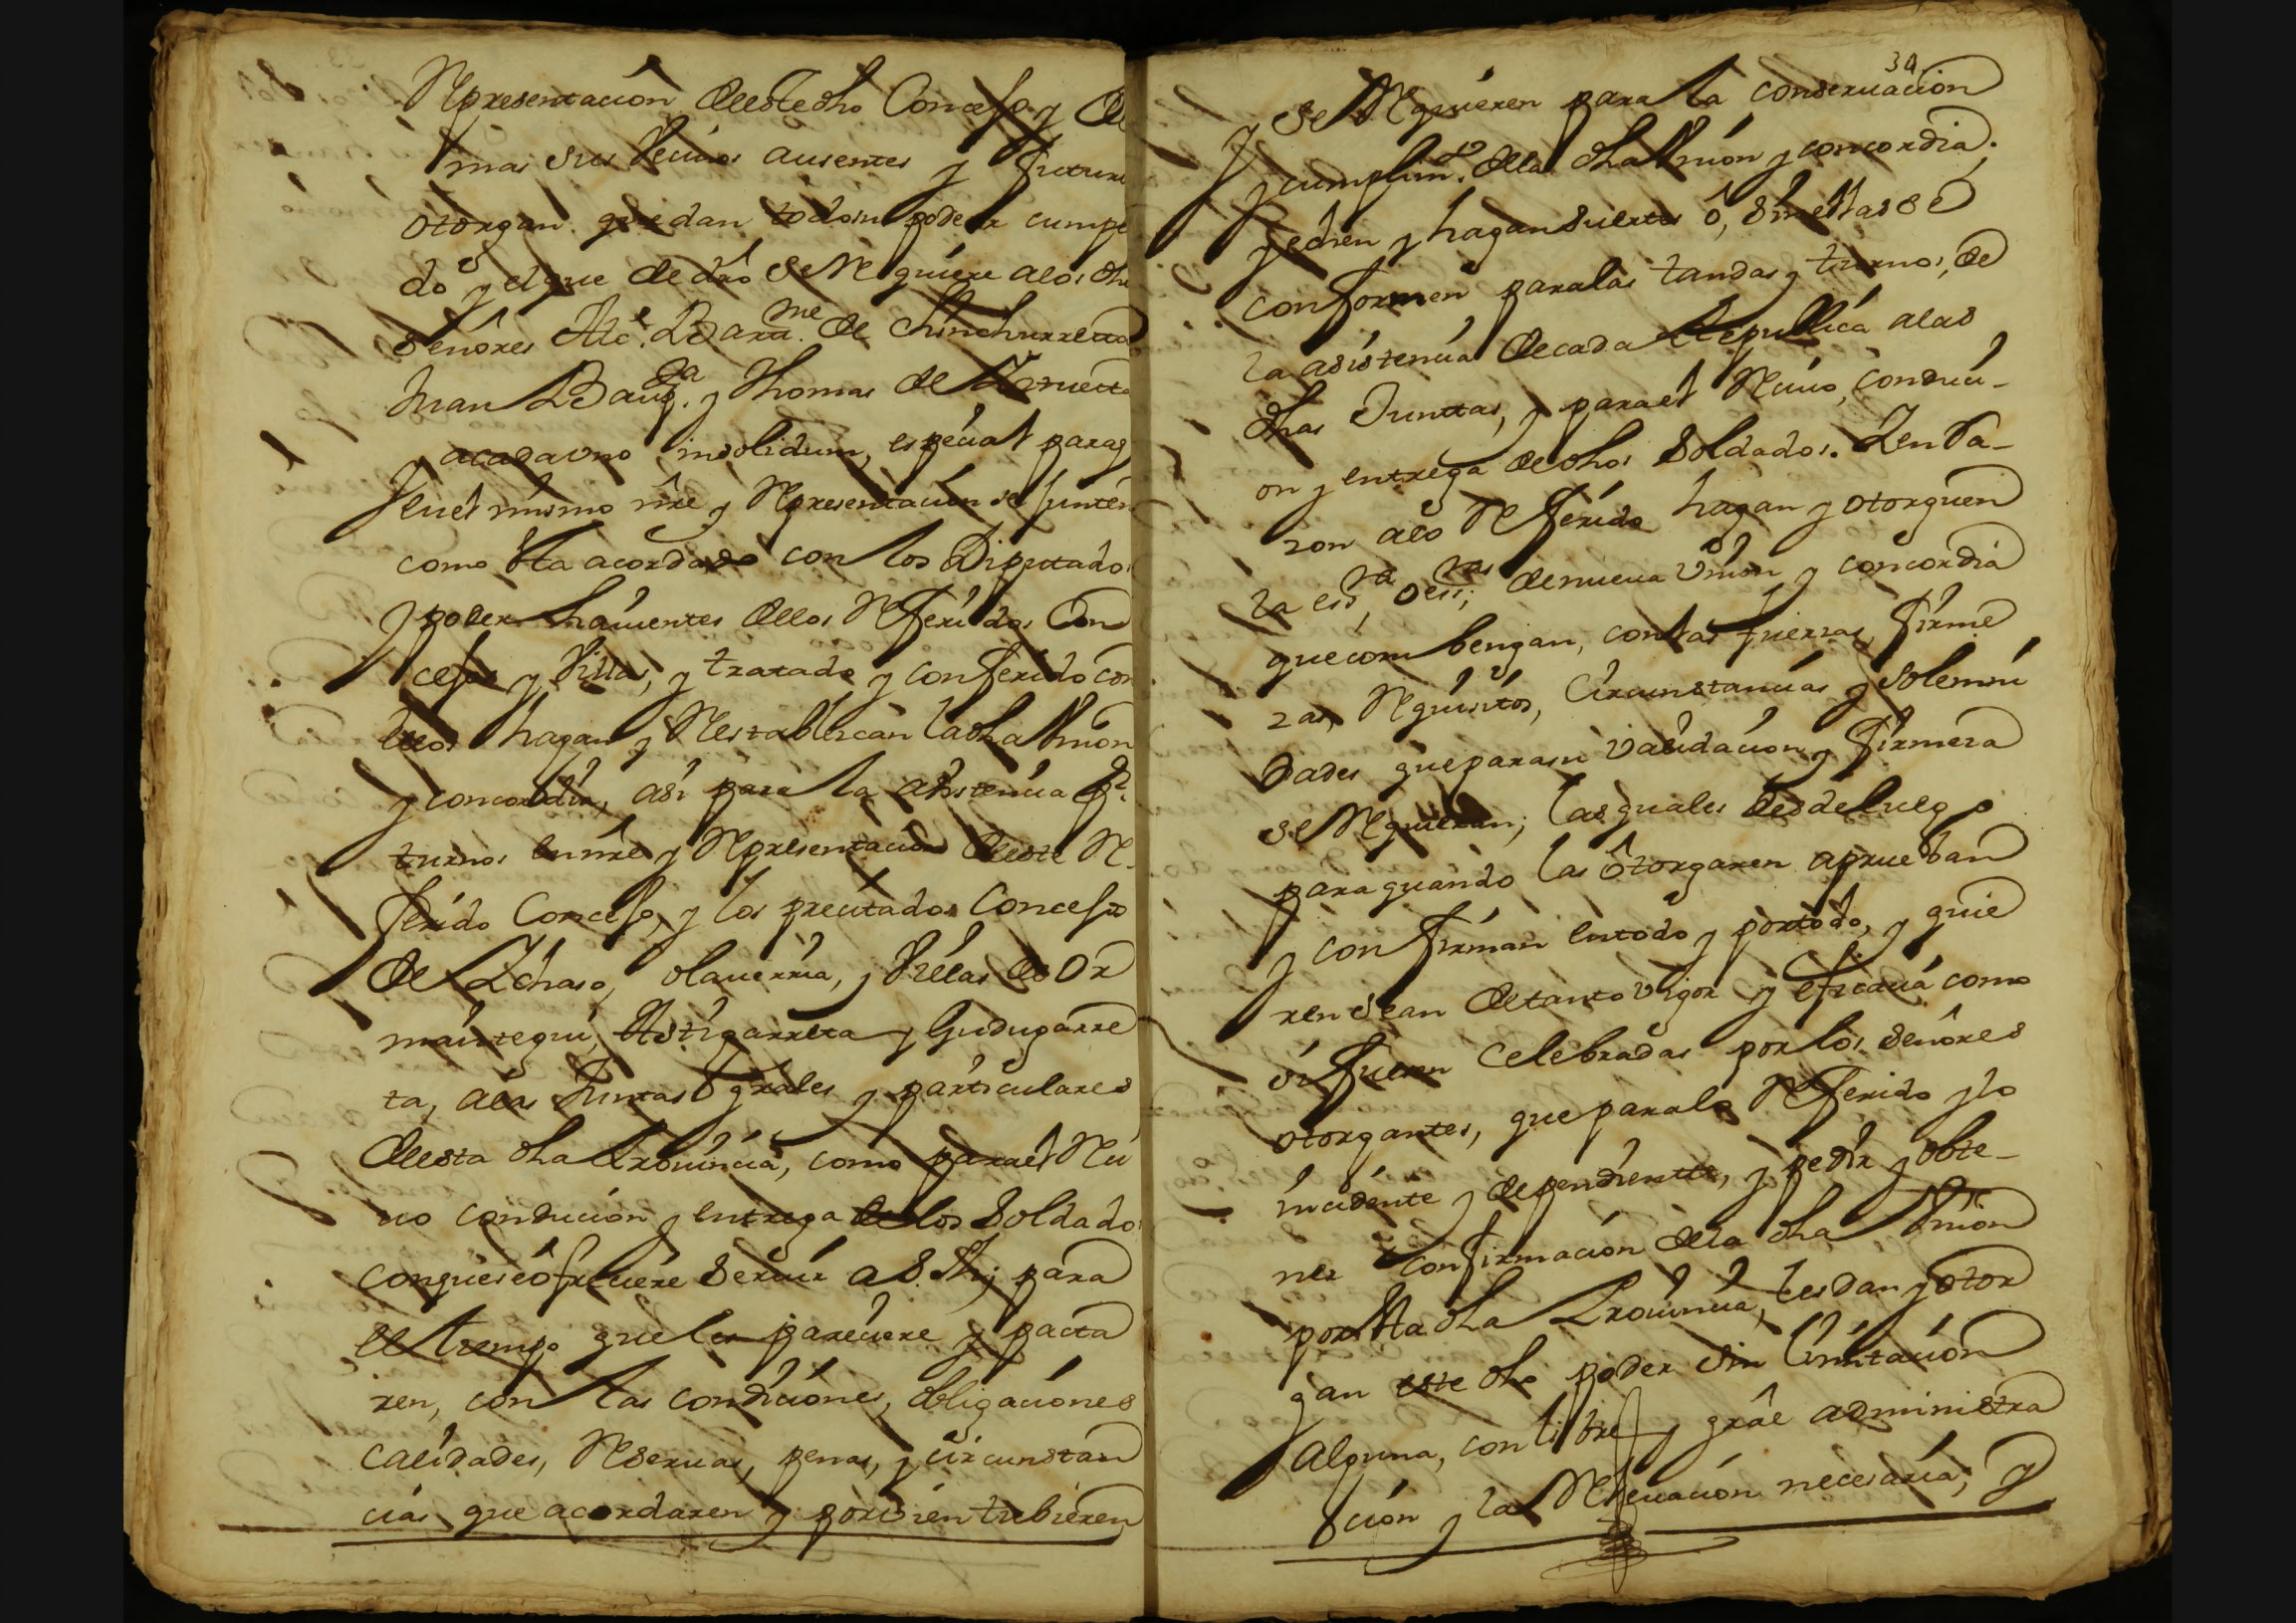 Representacion de este dho Concejo y de
mas sus Vecinos ausentes y futuro
otorgan que dan todo su poder cumpli
do y el que de dro se Requiere a los dho
señores Alc.e Barm.e de Chinchurreta
Juan Baup.ta y Thomas de
y acada vno insolidum, especial para q
en el mismo nre y Representacion se junten
como sta acordado con los Diputados
y poder hauientes de los Referidos Con
cejos y Villas, y tratado y conferido con
ellos hagan y Restablescan la dha Vnion
y concordia, asi para la asistencia p.r
turnos en nre y Representacion de este Re
ferido Concejo, y los precitados Concejos
de Ychaso, olauerria, y Villas de Or
maiztegui, Astigarreta y Gudugarre
ta, a las Juntas grales y particulares
de esta dha Prouincia, como para el Reci
uo conducion y entrega de los Soldados
con que se ofreciere Seruir a S. Mg. para
el tiempo que les pareciere y pacta
ren, con las condiciones, obligaciones
calidades, Reseruas, penas, y circunstan
cias que acordaren y por bien tubieren
34
se Requieren para la conseruacion
y cumplim.to de la dha Vnion y concordia,
y echen y hagan suertes ô, sin ellas se
conformen para las tandas y turnos, de
la asistencia de cada Republica a las
dhas Junttas, y para el Reciuo, conduci-
on y entrega de dhos Soldados. Y en Ra-
zon a lo Referido hagan y otorguen
la ess.ra o ess.ras de nueua Vnion y concordia
que combengan, con las fuerzas, firme
zas, Requisitos, Circunstancias y Solemni
dades que para su validacion y firmeza
se Requieran; las quales desde luego
para quando las ôtorgaren aprueban
y confirman en todo y por todo, y quie
ren sean de tanto vigor y eficacia como
si fueren Celebradas por los Señores
otorgantes, que para lo Referido y lo
incidente y dependiente, y pedir y obte-
ner confirmacion de la dha Vnion
por sta dha Prouincia, les dan y otor
gan este dho poder sin limitacion
alguna, con libre y grâl administra
cion y la Releuacion necesaria; y